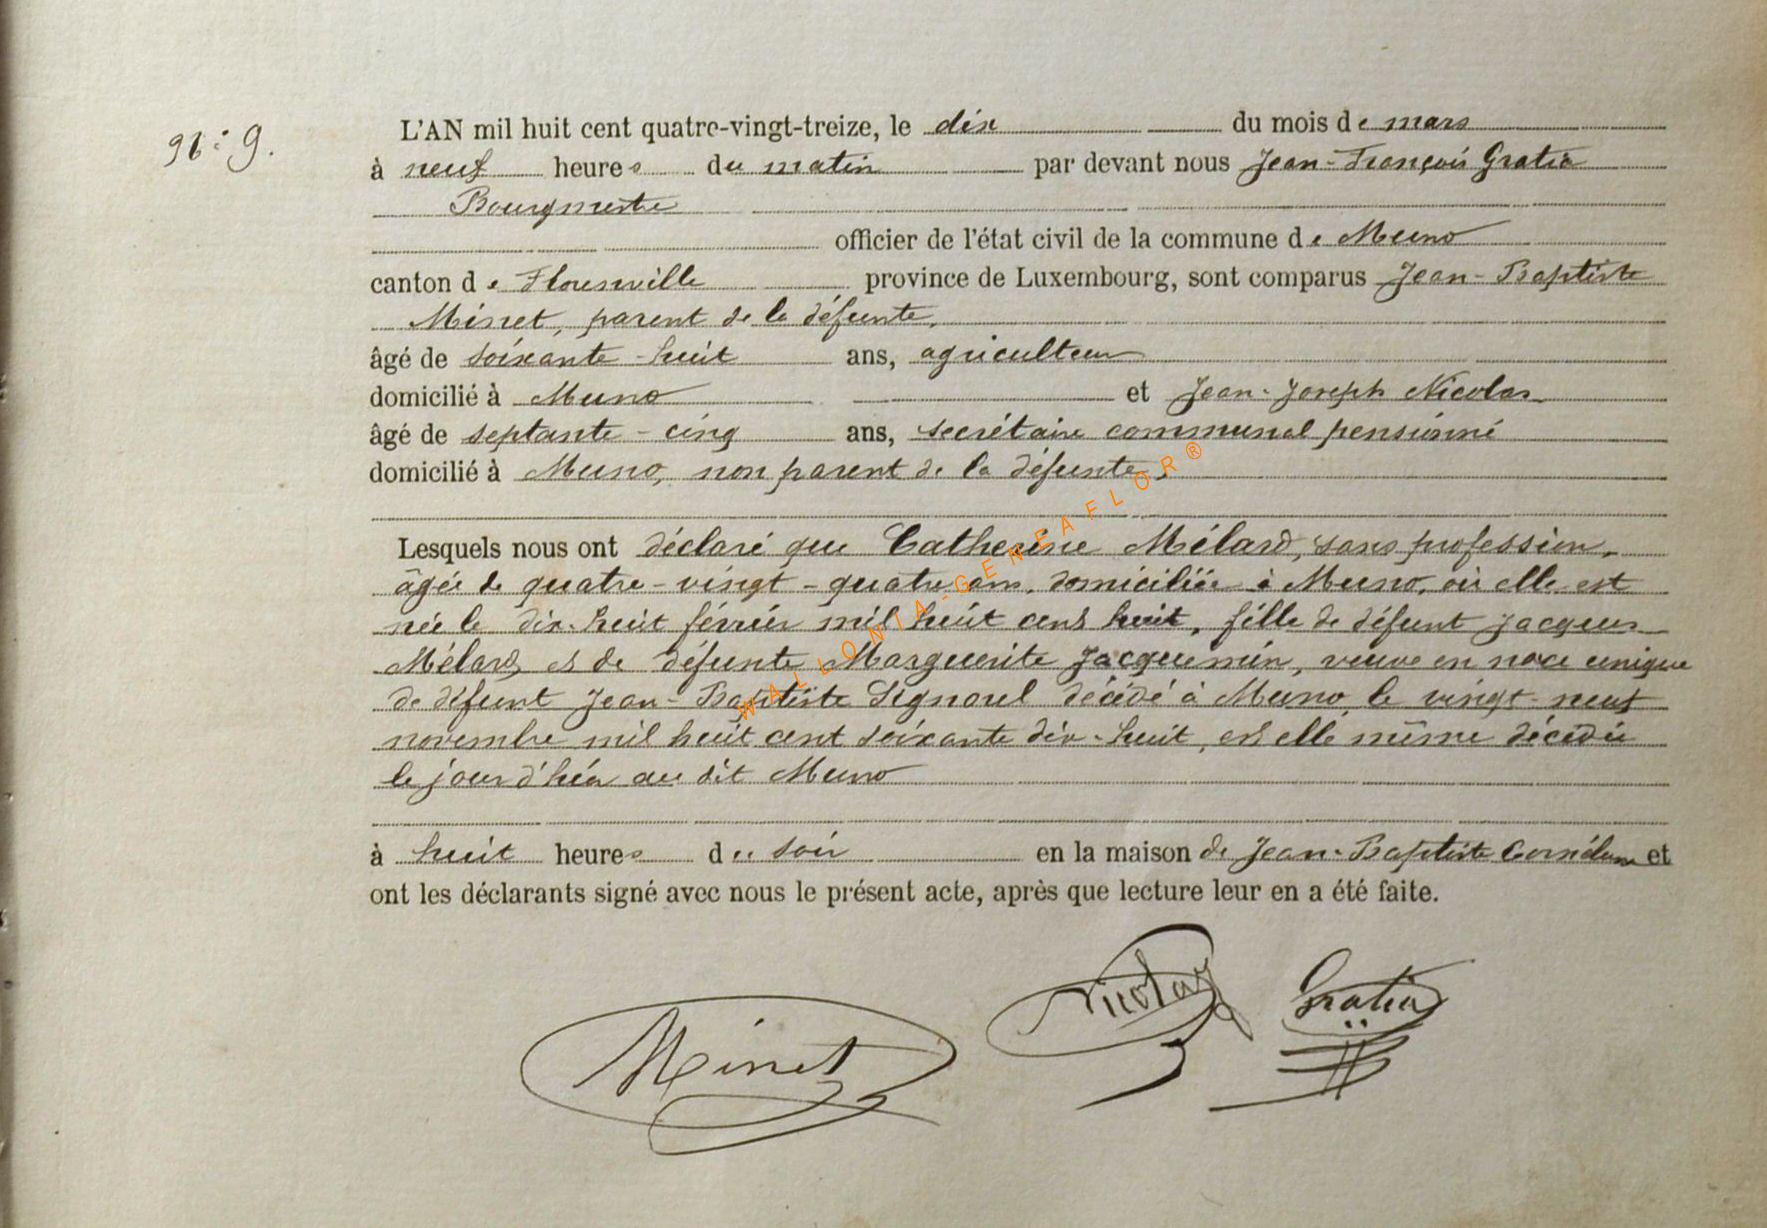 N°: 9.
L'AN mil huit cent quatre-vingt-treize, le dix du mois de mars
à neuf heures du matin par devant nous Jean-François Gratia
Bourgmestre
officier de l'état civil de la commune de Muno
canton de Florenville province de Luxembourg, sont comparus Jean-Baptiste
Minet, parent de la défunte,
âgé de soixante-huit ans, agriculteur
domicilié à Muno et Jean-Joseph Nicolas
âgé de septante-cinq ans, secrétaire communal pensionné
domicilié à Muno, non parent de la défunte,
Lesquels nous ont déclaré que Catherine Mélard, sans profession,
âgée de quatre-vingt-quatre ans, domiciliée à Muno, où elle est
née le dix-huit février mil huit cent huit, fille de défunt Jacques
Mélard, et de défunte Marguerite Jacquemin, veuve en noce unique
de défunt Jean-Baptiste Lignoul décédé à Muno, le vingt-neuf
novembre mil huit cent soixante dix-huit, est elle même décédée
le jour d'hier au dit Muno
à huit heures du soir en la maison de Jean-Baptiste et
ont les déclarants signé avec nous le présent acte, après que lecture leur en a été faite.
Minet
Nicolas
Gratia
WALLONIA-GENEAFLOR®